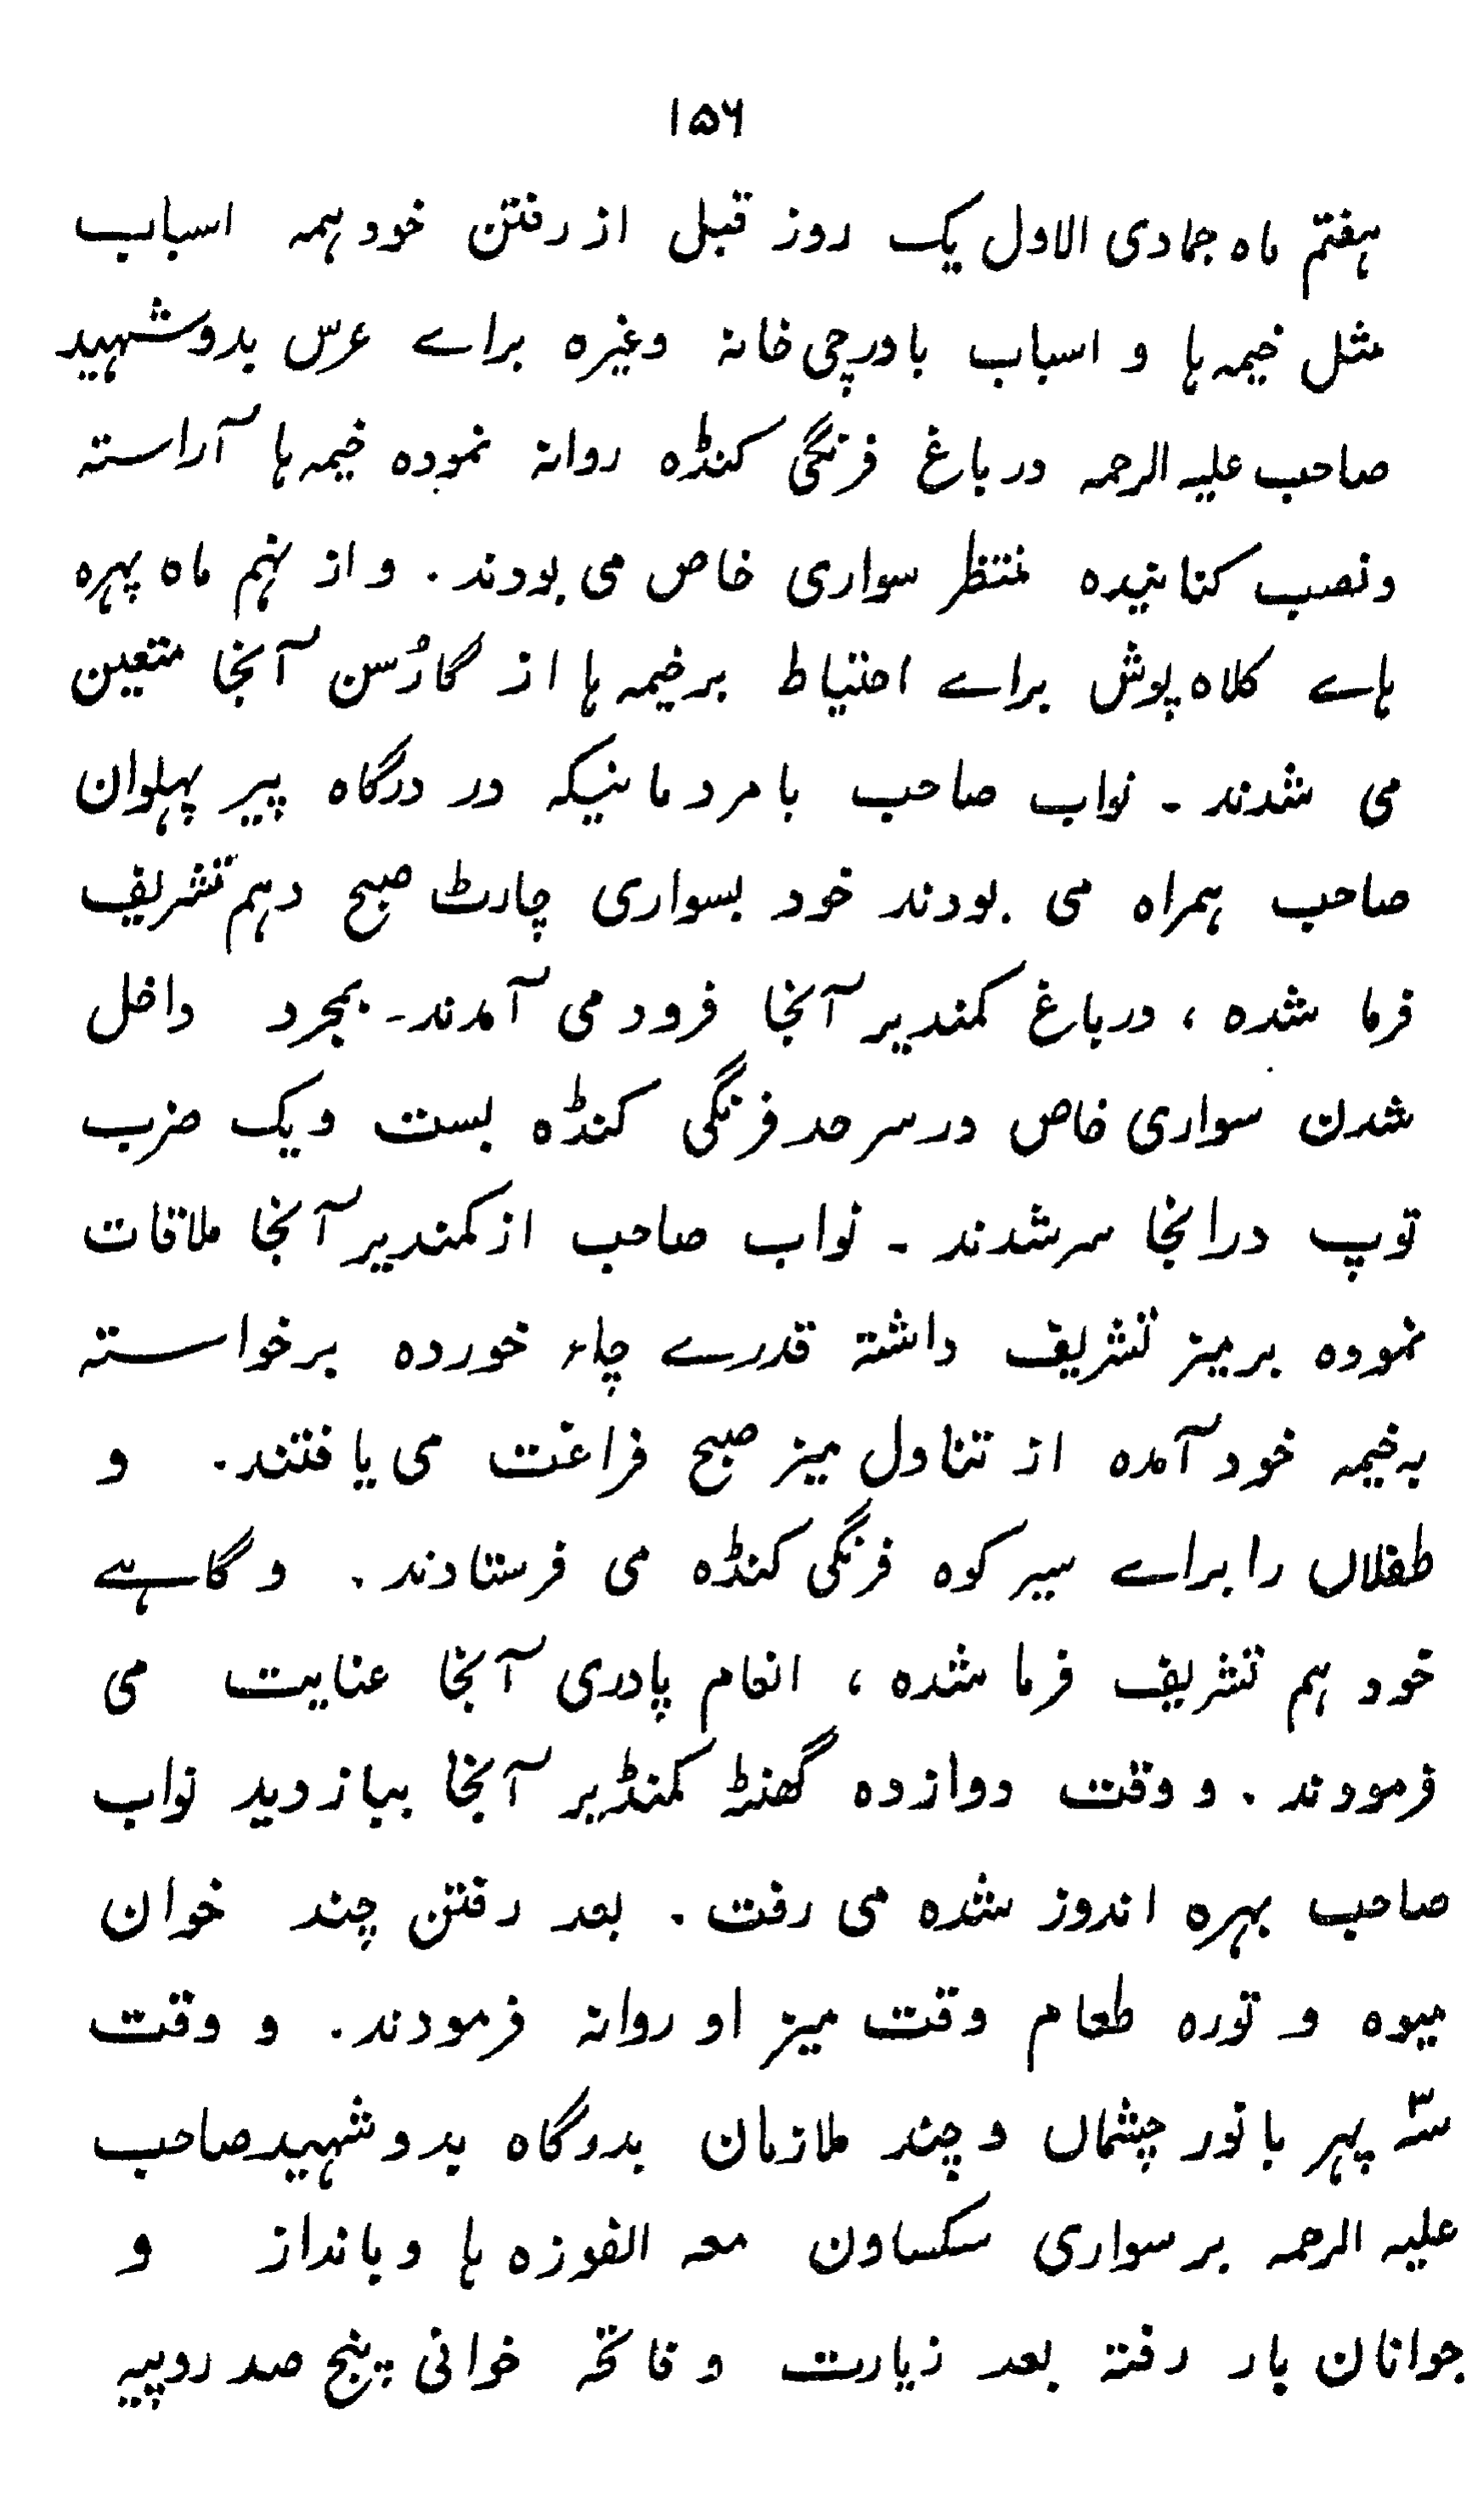 ۱۵۶
ہفتم ماہ جمادی الاول یک روز قبل از رفتن خود ہمہ اسباب
مثل خیمہ ہا و اسباب باورچی خانہ وغیرہ براے عرس بدو شہید
صاحب علیہ الرحمہ در باغ فرنگی کنڈہ روانہ نمودہ خیمہ ہا آراستہ
ونصب کنانیدہ منتظر سواری خاص می بودند. و از نہم ماہ پہرہ
ہاے کلاہ پوش براے احتیاط برخیمہ ہا از گارُسن آنجا متعین
می شدند ـ نواب صاحب بامردمانیکہ در درگاہ پیر پہلوان
صاحب ہمراہ می بودند خود بسواری چارٹ صبح دہم تشریف
فرما شدہ ، درباغ کمندیر آنجا فرود می آمدند ـ بمجرد داخل
شدن سواری خاص در سرحد فرنگی کنڈہ بست ویک ضرب
توپ درانجا سرشدند ـ نواب صاحب از کمندیر آنجا ملاقات
نمودہ برمیز تشریف داشتہ قدرے چاء خوردہ برخواستہ
بہ خیمہ خود آمدہ از تناول میز صبح فراغت می یافتند. و
طفلاں را براے سیر کوہ فرنگی کنڈہ می فرستادند. وگاہے
خود ہم تشریف فرما شدہ ، انعام پادری آنجا عنایت می
فرمودند. و وقت دوازدہ گھنٹ کمنڈیر آنجا ببازدید نواب
صاحب بہرہ اندوز شدہ می رفت. بعد رفتن چند خوان
میوہ و تورہ طعام وقت میز او روانہ فرمودند. و وقت
سہ پہر بانور چشماں و چند ملازمان بدرگاہ بدو شہید صاحب
علیہ الرحمہ بر سواری سکساون معہ الغوزہ ہا وبانداز و
جوانان بار رفتہ بعد زیارت و فاتحہ خوانی پنج صد روپیہ